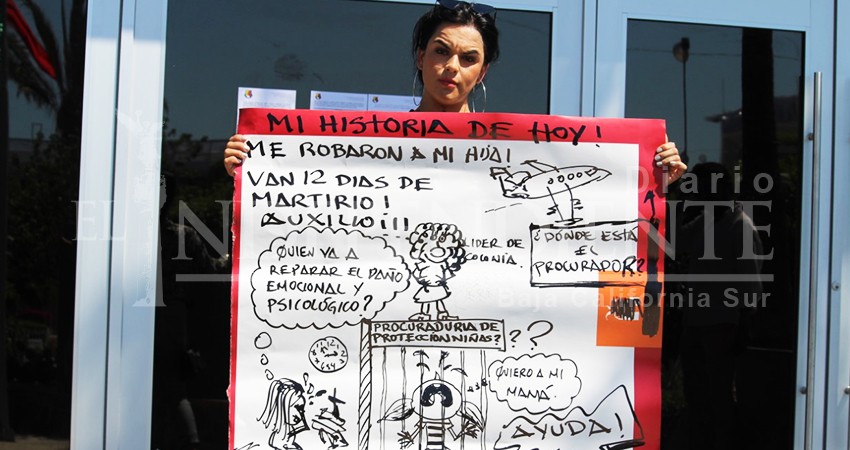 MI HISTORIA DE HOY!
ME ROBARON A MI HIJA!
VAN 12 DIAS DE
MARTIRIO!
AUXILIO!!!
LIDER DE
COLONIA.
¿DÓNDE ESTÁ
EL
PROCURADOR?
¿QUIEN VA A
REPARAR EL DAÑO
EMOCIONAL Y
PSICOLÓGICO?
PROCURADURIA DE
PROTECCION NIÑAS?
???
QUIERO A MI
MAMÁ.
AYUDA!
Diario
EL INDEPENDIENTE
Baja California Sur